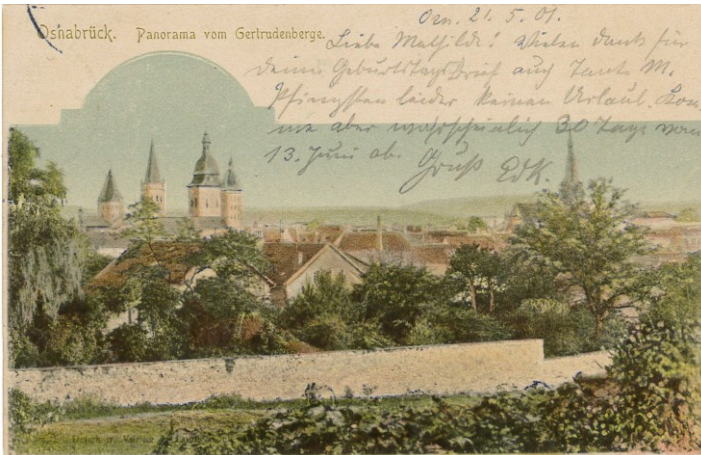 Osnabrück. Panorama vom Gertrudenberge.
Osn. 21. 5. 01.
Liebe Mathilde! Vielen Dank für
Deinen Geburtstagsbrief auch Tante M.
Pfingsten leider keinen Urlaub. Kom-
me aber wahrscheinlich 30 Tage vom
13. Juni ab. Gruß